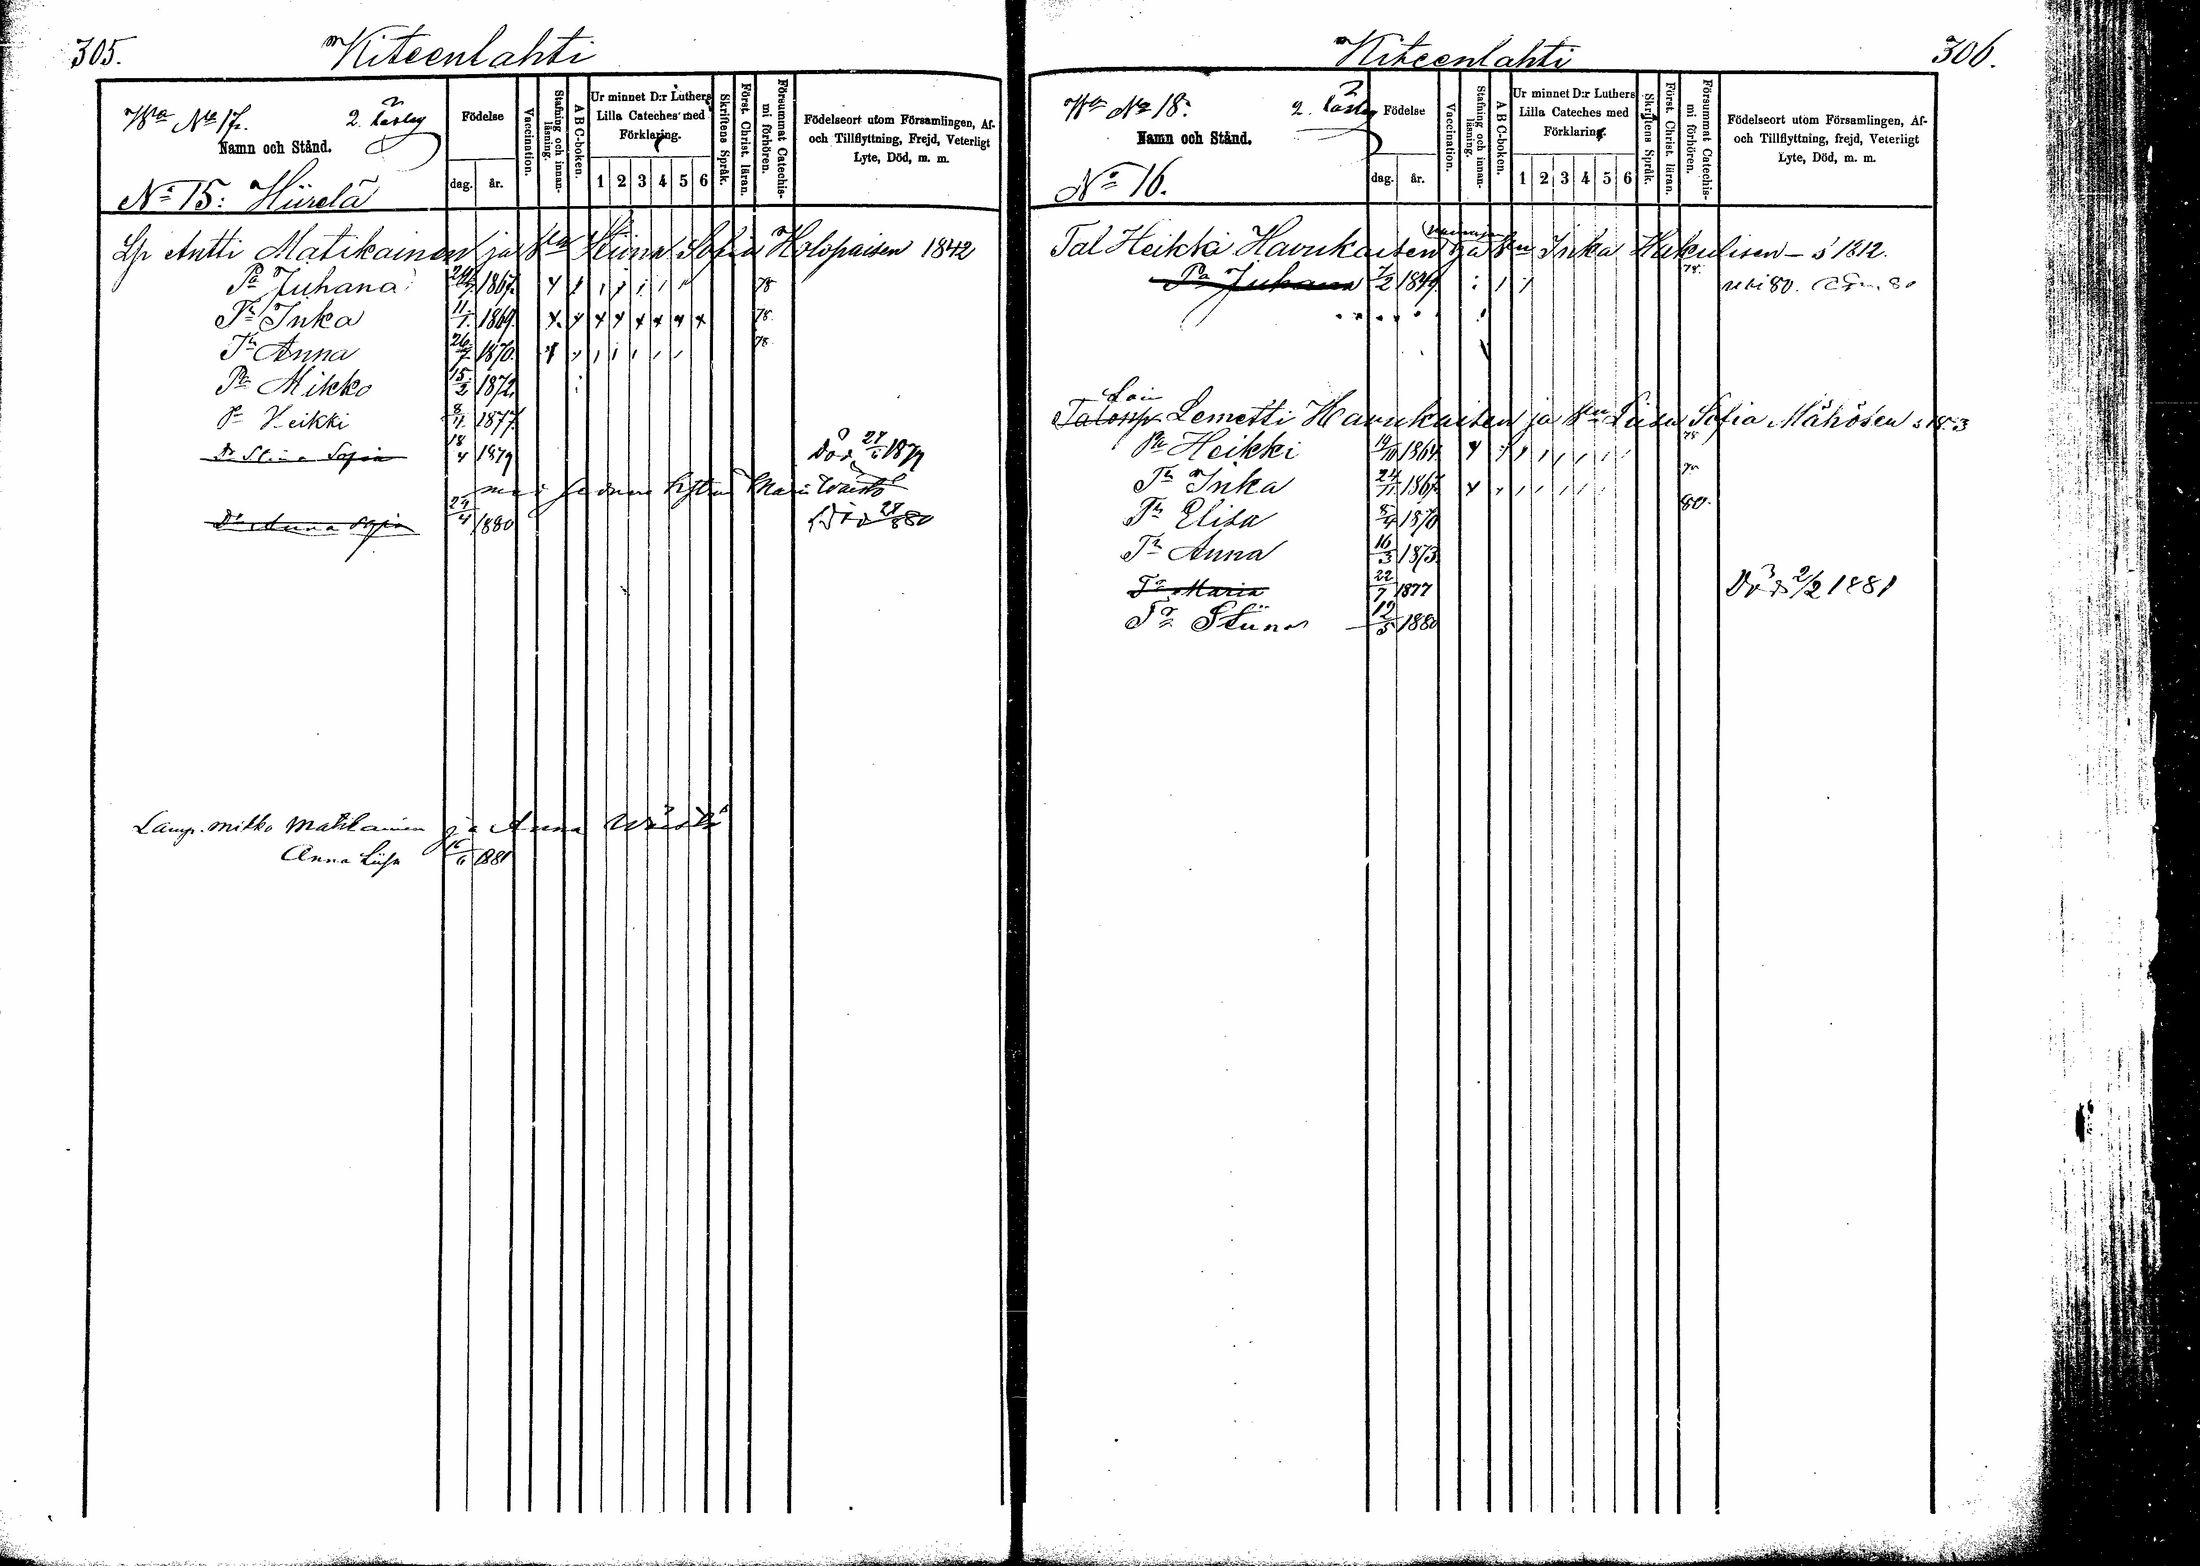 305.
Kiteenlahti
Wra No 17.
2. Lasleg
Namn och Stånd.
No 15: Hiirelä
Födelse
dag.
år.
Vaccination.
Stafning och innanläsning.
A B C-boken.
Ur minnet D:r Luthers
Lilla Cateches med
Förklaring.
1 2 3 4 5 6
Skriftens Språk.
Först. Christ. läran.
Försummat Catechismi förhören.
Födelseort utom Församlingen, Af-
och Tillflyttning, Frejd, Veterligt
Lyte, Död, m. m.
Lp Antti Matikainen ja Stiina Sofia Holopaisen 1842
Pa Juhana 24/7 1867. 78
Tr Inka 11/1 1869. 78.
Tr Anna 26/7 1870. 78
Pa Mikko 15/2 1872.
Pa Heikki 8/11 1877.
Dr Stina Sofia 18/4 1879 Död 27/6 1879
Maria Waistö
Dr Anna Sofia 24/4 1880 Död 28/8 80
Lamp. Mikko Matikainen ja Anna Wäistö
Anna Liisa 16/6 1881
306.
Kiteenlahti
Wra No 18.
2. Lasleg
Namn och Stånd.
No 16.
Födelse
dag.
år.
Vaccination.
Stafning och innanläsning.
A B C-boken.
Ur minnet D:r Luthers
Lilla Cateches med
Förklaring.
1 2 3 4 5 6
Skriftens Språk.
Först. Christ. läran.
Försummat Catechismi förhören.
Födelseort utom Församlingen, Af-
och Tillflyttning, frejd, Veterligt
Lyte, Död, m. m.
Tal Heikki Havukaisen ja Inka Hakulisen - s 1812.
Pa Juhana 7/2 1849. 78.
Loin
Lemetti Havukaisen ja Liisa Sofia Mähösen
Pa Heikki 19/10 1864. 78
Tr Inka 24/11 1867.
Tr Elisa 8/4 1870 80.
Tr Anna 16/3 1873.
Tr Maria 22/7 1877 Död 2/2 1881
Tr Stiina 12/5 1880